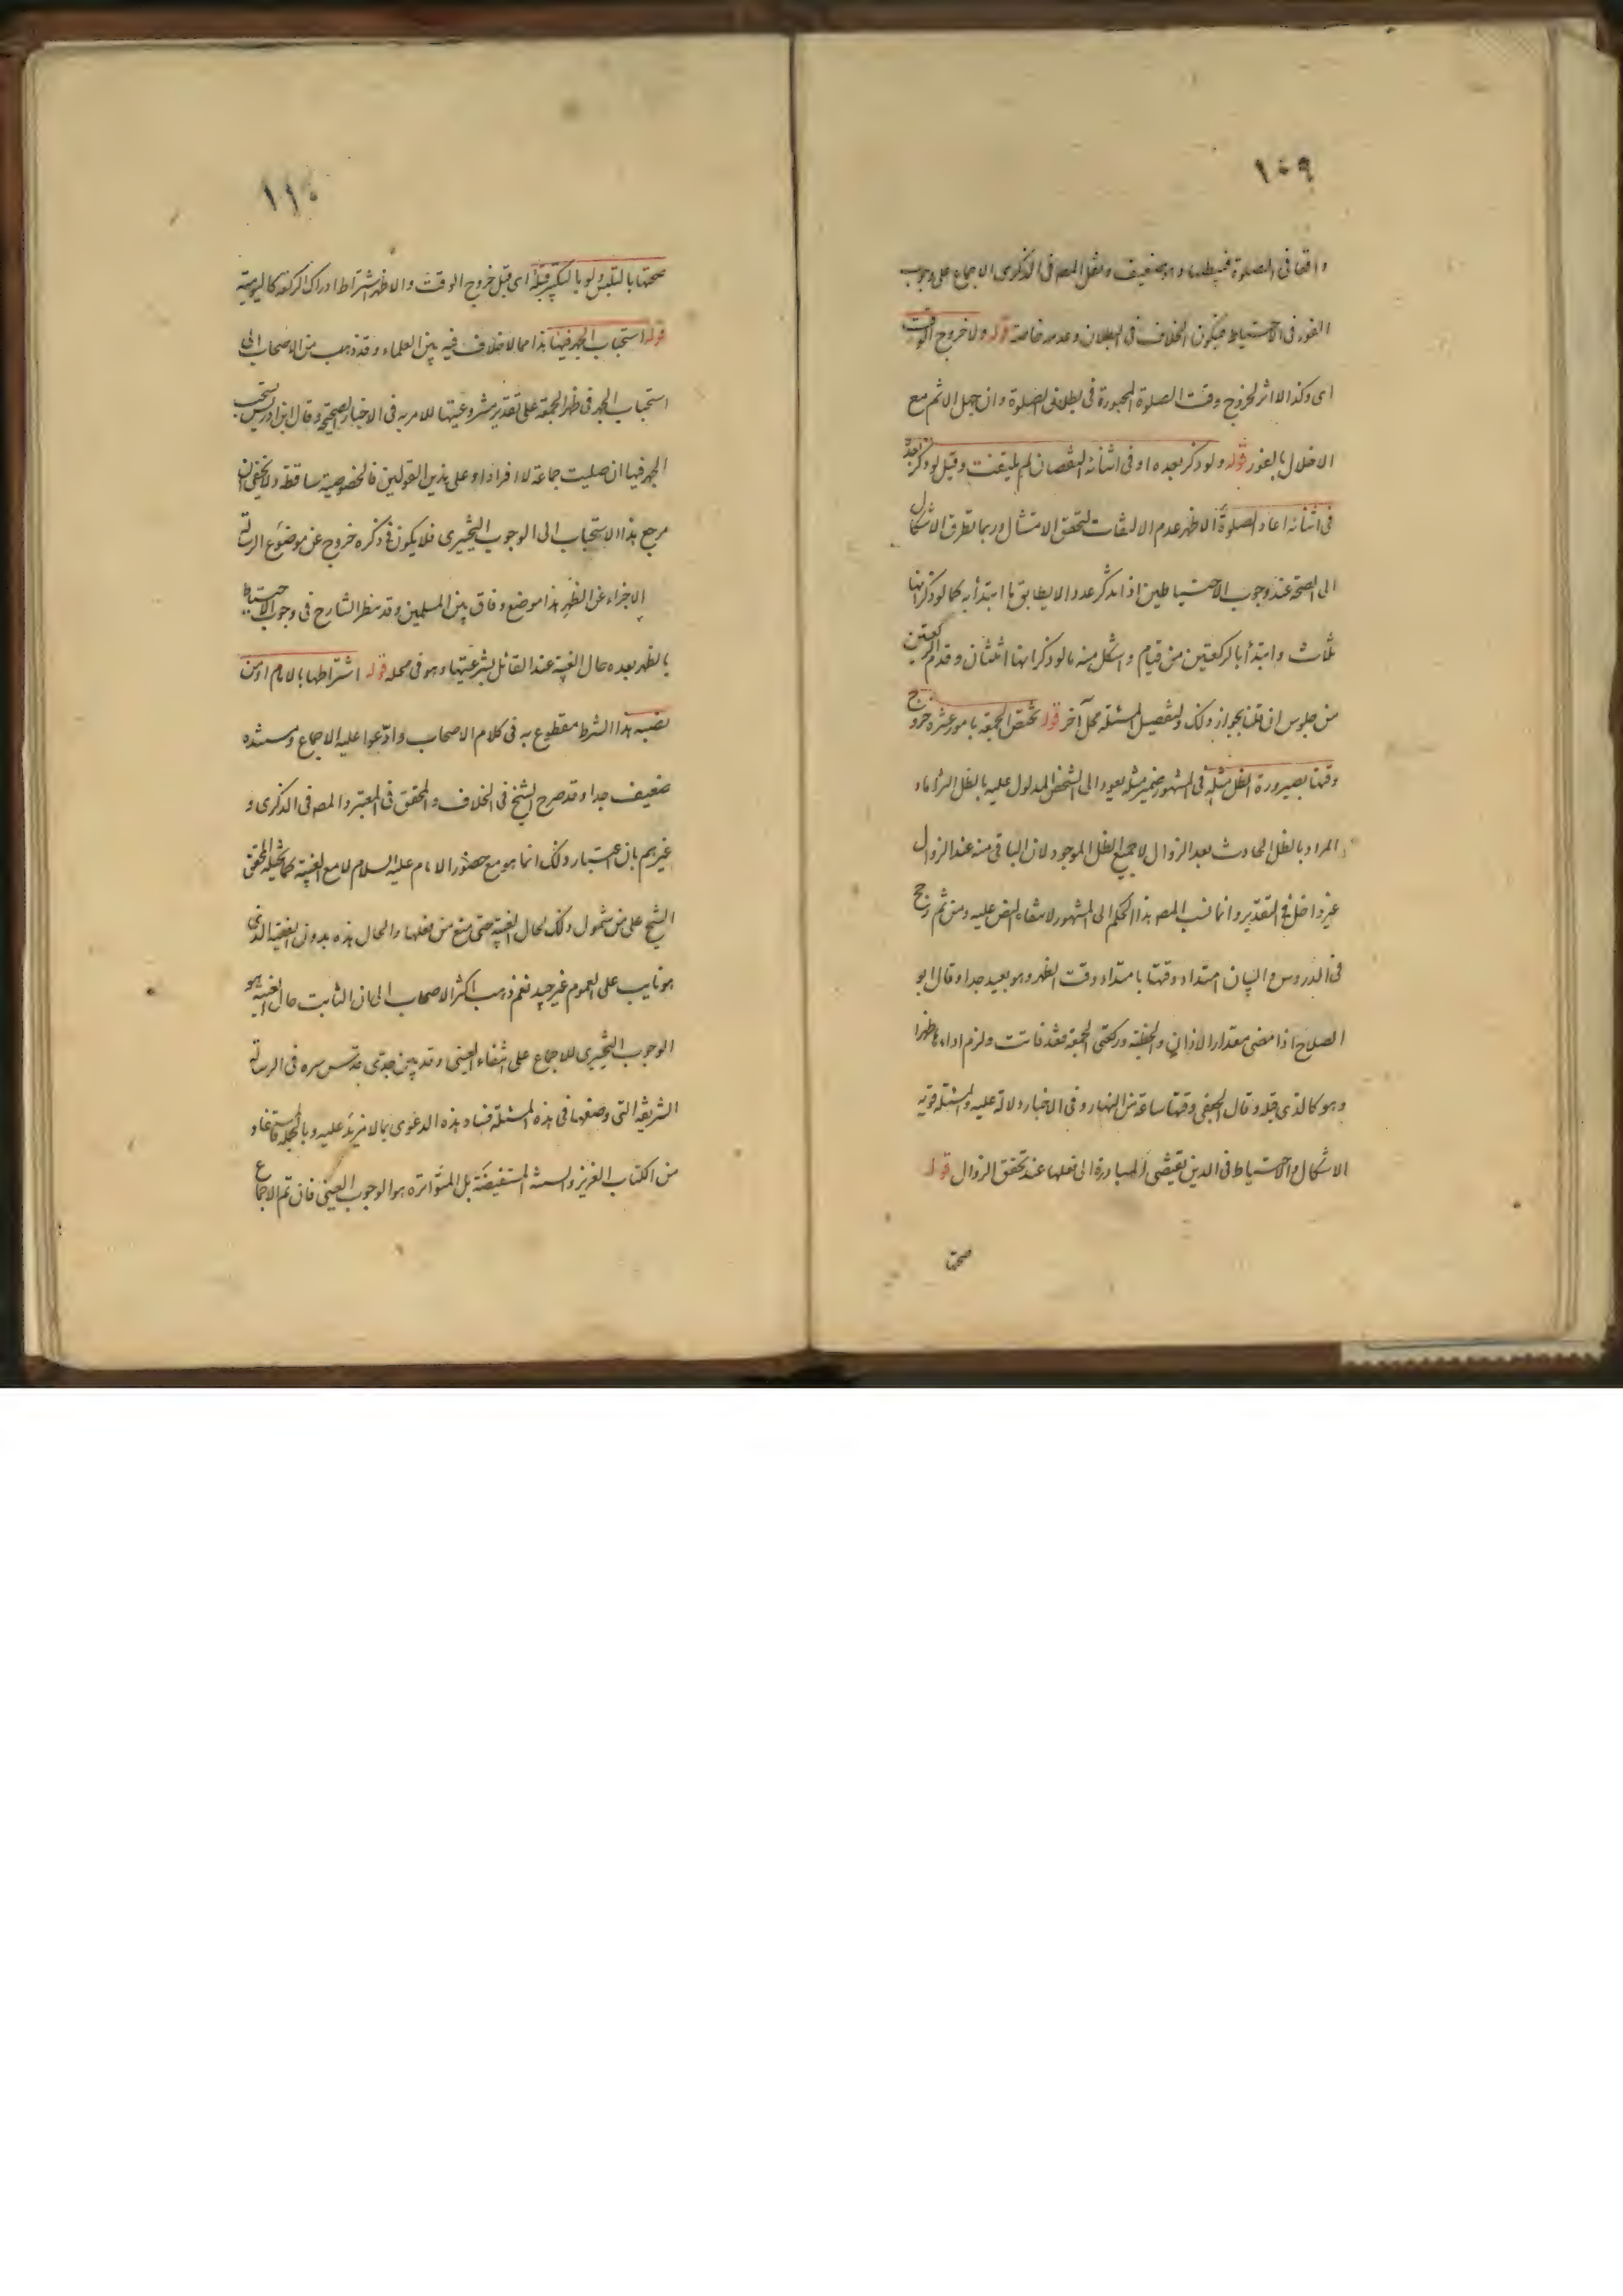 ١٠٩
واقعا فى الصلوة فيبطلها وهو ضعيف ونقل المصه فى الذكرى الاجماع على وجوب
الفور فى الاحتياط فيكون الخلاف فى البطلان وعدمه خاصة قوله ولا خروج الوقت
اى وكذا لا اثر لخروج وقت الصلوة المجبورة فى بطلان الصلوة وان حصل الاثم مع
الاخلال بالفور قوله ولو ذكر بعده او فى اثنائه النقصان لم يلتفت وقيل لو ذكر بعده
فى اثنائه اعاد الصلوة الاظهر عدم الالتفات لتحقق الامتثال وربما تطرق الاشكال
الى الصحة عند وجوب الاحتياطين اذا تذكر عددا لا يطابق ما ابتدأ به كما لو ذكر انها
ثلث وابتدأ بالركعتين من قيام واشكل منه ما لو ذكر انها اثنتان وقدم الركعتين
من جلوس ان قلنا بجواز ذلك ولتفصيل المسئلة محل آخر قوله تختص الجمعة بامور عشرة خروج
وقتها بصيرورة الظل مثله فى المشهور ضمير مثله يعود الى الشخص المدلول عليه بالظل التزاما و
المراد بالظل الحادث بعد الزوال لا جميع الظل الموجود لان الباقى منه عند الزوال
غير داخل فى التقدير وانما نسب المصه هذا الحكم الى المشهور لانتفاء النص عليه ومن ثم رجح
فى الدروس والبيان امتداد وقتها بامتداد وقت الظهر وهو بعيد جدا وقال ابو
الصلاح اذا مضى مقدار الاذان والخطبة وركعتى الجمعة فقد فاتت ولزم اداءها ظهرا
وهو كالذى قبله وقال الجعفى وقتها ساعة من النهار وفى الاخبار دلالة عليه والمسئلة قوية
الاشكال والاحتياط فى الدين يقتضى المبادرة الى فعلها عند تحقق الزوال قوله
صحتها
١١٠
صحتها بالتلبس ولو بالتكبير قبله اى قبل خروج الوقت والاظهر اشتراط ادراك الركعة كاليومية
قوله استحباب الجهر فيها هذا مما لا خلاف فيه بين العلماء وقد ذهب من الاصحاب الى
استحباب الجهر فى ظهر الجمعة على تقدير مشروعيتها للامر به فى الاخبار الصحيحة وقال ابن ادريس يستحب
الجهر فيها ان صليت جماعة لا افرادا وعلى هذين القولين فالخصوصية ساقطة ولا يخفى ان
مرجع هذا الاستحباب الى الوجوب التخييرى فلا يكون فى ذكره خروج عن موضوع الرسالة
الاجزاء عن الظهر هذا موضع وفاق بين المسلمين وقد نظر الشارح فى وجوب الاحتياط
بالظهر بعده حال الغيبة عند القائل بشرعيتها وهو فى محله قوله اشتراطها بالامام او من
نصبه هذا الشرط مقطوع به فى كلام الاصحاب وادعوا عليه الاجماع ومستنده
ضعيف جدا وقد صرح الشيخ فى الخلاف والمحقق فى المعتبر والمصه فى الذكرى و
غيرهم بان اعتبار ذلك انما هو مع حضور الامام عليه السلام لا مع الغيبة كما تخيله المحقق
الشيخ على من شمول ذلك لحال الغيبة حتى منع من فعلها والحال هذه بدون الفقيه الذى
هو نايب على العموم غير جيد نعم ذهب اكثر الاصحاب الى ان الثابت حال الغيبة هو
الوجوب التخييرى للاجماع على انتفاء العينى وقد بين جدى قدس سره فى الرسالة
الشريفة التى وضعها فى هذه المسئلة فساد هذه الدعوى بما لا مزيد عليه وبالجملة فالمستفاد
من الكتاب العزيز والسنة المستفيضة بل المتواترة هو الوجوب العينى فان تم الاجماع